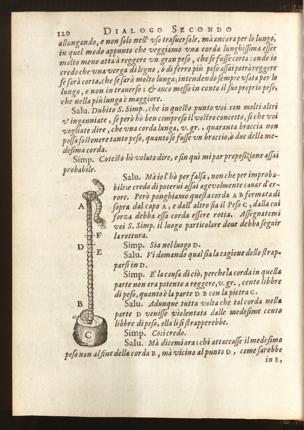 120 DIALOGO SECONDO
allungando, e non solo nell'uso trasuersale, mà ancora per lo lungo,
in quel modo appunto che veggiamo vna corda lunghissima esser
molto meno atta à reggere vn gran peso, che se fusse corta: onde io
credo che vna verga di legno, ò di ferro più peso assai potrà reggere
se sarà corta, che se sarà molto lunga; intendendo sempre vsata per lo
lungo, e non in trauerso; & auco messo in conto il suo proprio peso,
che nella più lunga è maggiore.
Salu. Dubito S. Simp. che in questo punto voi con molti altri
v'inganniate, se però hò ben compreso il vostro concetto, sì che voi
vogliate dire, che vna corda lunga, v. gr., quaranta braccia non
possa sostenere tanto peso, quanto se fusse vn braccio, ò due della me-
desima corda.
Simp. Cotesto hò voluto dire, e sin quì mi par proposizione assai
probabile.
Salu. Mà io l'hò per falsa, non che per improba-
bile: e credo di poterui assai ageuolmente cauar d'er-
rore. Però ponghiamo questa corda A B fermata di
sopra dal capo A, e dall'altro sia il Peso C, dalla cui
forza debba essa corda essere rotta. Assegnatemi
voi S. Simp. il luogo particolare doue debba seguir
la rottura.
Simp. Sia nel luogo D.
Salu. Vi domando qual sia la cagione dello strap-
parsi in D.
Simp. E' la causa di ciò, perche la corda in quella
parte non era potente a reggere, v. gr., cento libbre
di peso, quanto è la parte D B con la pietra C.
Salu. Adunque tutta volta che tal corda nella
parte D venisse violentata dalle medesime cento
libbre di peso, ella lì si strapperebbe.
Simp. Così credo.
Salu. Mà ditemi ora: chi attaccasse il medesimo
peso non al fine della corda B, mà vicino al punto D, come sarebbe
in E,
A
F
D
E
B
C